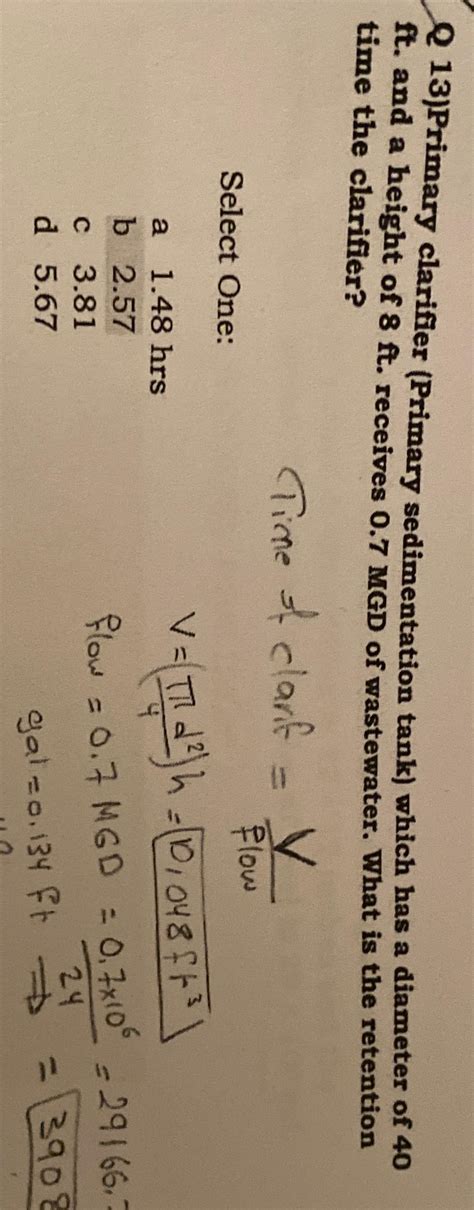 Q 13)Primary clarifier (Primary sedimentation tank) which has a diameter of 40
ft. and a height of 8 ft. receives 0.7 MGD of wastewater. What is the retention
time the clarifier?
Time of clarif = V / flow
Select One:
a 1.48 hrs
b 2.57
c 3.81
d 5.67
V = (π d² / 4) h = 10,048 ft³
flow = 0.7 MGD = 0.7x10⁶ / 24 = 29166.
gal = 0.134 ft ⇒ = 3908